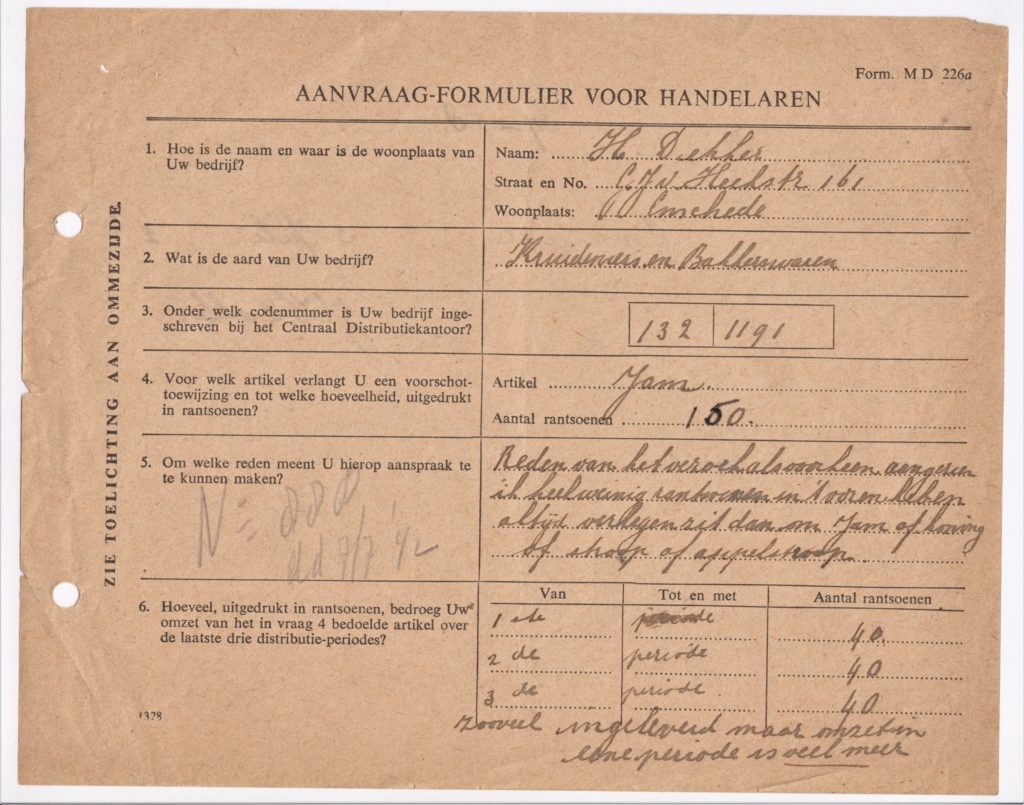 Form. M D 226a
AANVRAAG-FORMULIER VOOR HANDELAREN
ZIE TOELICHTING AAN OMMEZIJDE.
1. Hoe is de naam en waar is de woonplaats van
Uw bedrijf?
Naam: H Dekker
Straat en No. G J v Heekstr 161
Woonplaats: Enschede
2. Wat is de aard van Uw bedrijf?
Kruideniers en Bakkerswaren
3. Onder welk codenummer is Uw bedrijf inge-
schreven bij het Centraal Distributiekantoor?
132 1191
4. Voor welk artikel verlangt U een voorschot-
toewijzing en tot welke hoeveelheid, uitgedrukt
in rantsoenen?
Artikel Jam.
Aantal rantsoenen 150.
5. Om welke reden meent U hierop aanspraak te
te kunnen maken?
Reden van het verzoek alsvorheen aangezien
ik heel weinig rantsoenen in 't voren heb en
altijd verlegen zit dan om Jam of honing
of stroop of appelstroop
No 888
dd 7/7 42
6. Hoeveel, uitgedrukt in rantsoenen, bedroeg Uw
omzet van het in vraag 4 bedoelde artikel over
de laatste drie distributie-periodes?
Van Tot en met Aantal rantsoenen
1 ste periode 40.
2 de periode 40
3 de periode. 40
zooveel ingeleverd maar omzet in
eene periode is veel meer
1328